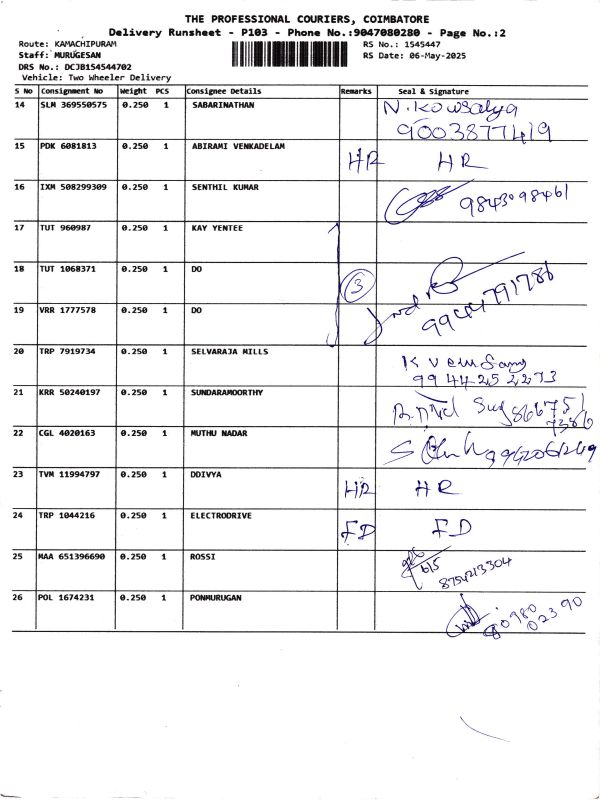 THE PROFESSIONAL COURIERS, COIMBATORE
Delivery Runsheet - P103 - Phone No.:9047080280 - Page No.:2
Route: KAMACHIPURAM RS No.: 1545447
Staff: MURUGESAN RS Date: 06-May-2025
DRS No.: DCJB154544702
Vehicle: Two Wheeler Delivery
S No Consignment No Weight PCS Consignee Details Remarks Seal & Signature
14 SLM 369550575 0.250 1 SABARINATHAN N. Kowsalya
9003877419
15 PDK 6081813 0.250 1 ABIRAMI VENKADELAM HR HR
16 IXM 508299309 0.250 1 SENTHIL KUMAR 9843098461
17 TUT 960987 0.250 1 KAY YENTEE
18 TUT 1068371 0.250 1 DO 3
19 VRR 1777578 0.250 1 DO 9944791786
20 TRP 7919734 0.250 1 SELVARAJA MILLS
9944252273
21 KRR 50240197 0.250 1 SUNDARAMOORTHY
22 CGL 4020163 0.250 1 MUTHU NADAR
23 TVM 11994797 0.250 1 DDIVYA HR HR
24 TRP 1044216 0.250 1 ELECTRODRIVE FD FD
25 MAA 651396690 0.250 1 ROSSI 8754213304
26 POL 1674231 0.250 1 PONMURUGAN